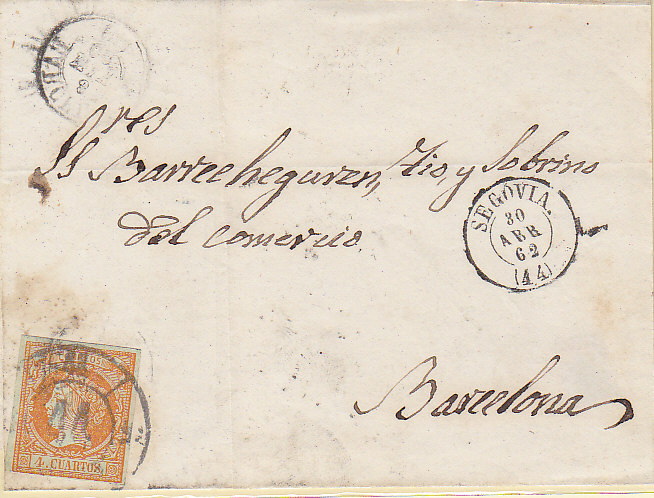 res
SS Barrecheguren, Tio, y Sobrino
del comercio
SEGOVIA.
30
ABR
62
(44)
Barcelona
CORREOS
4 CUARTOS.